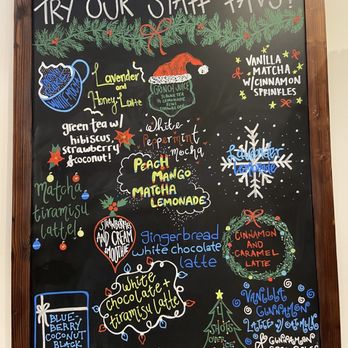 TRY OUR STAFF FAVS!
Lavender
and
Honey Latte
GRINCH JUICE
VANILLA
MATCHA
W/CINNAMON
SPRINKLES
green tea w/
hibiscus,
strawberry
& coconut!
White
Peppermint
mocha
PEACH
MANGO
MATCHA
LEMONADE
Lavender
Lemonade
Matcha
tiramisu
latte!
STRAWBERRIES
AND CREAM
SMOOTHIE
gingerbread
white chocolate
latte
CINNAMON
AND
CARAMEL
LATTE
white
chocolate +
tiramisu latte
BLUE-
BERRY
COCONUT
BLACK
VANILLA
CINNAMON